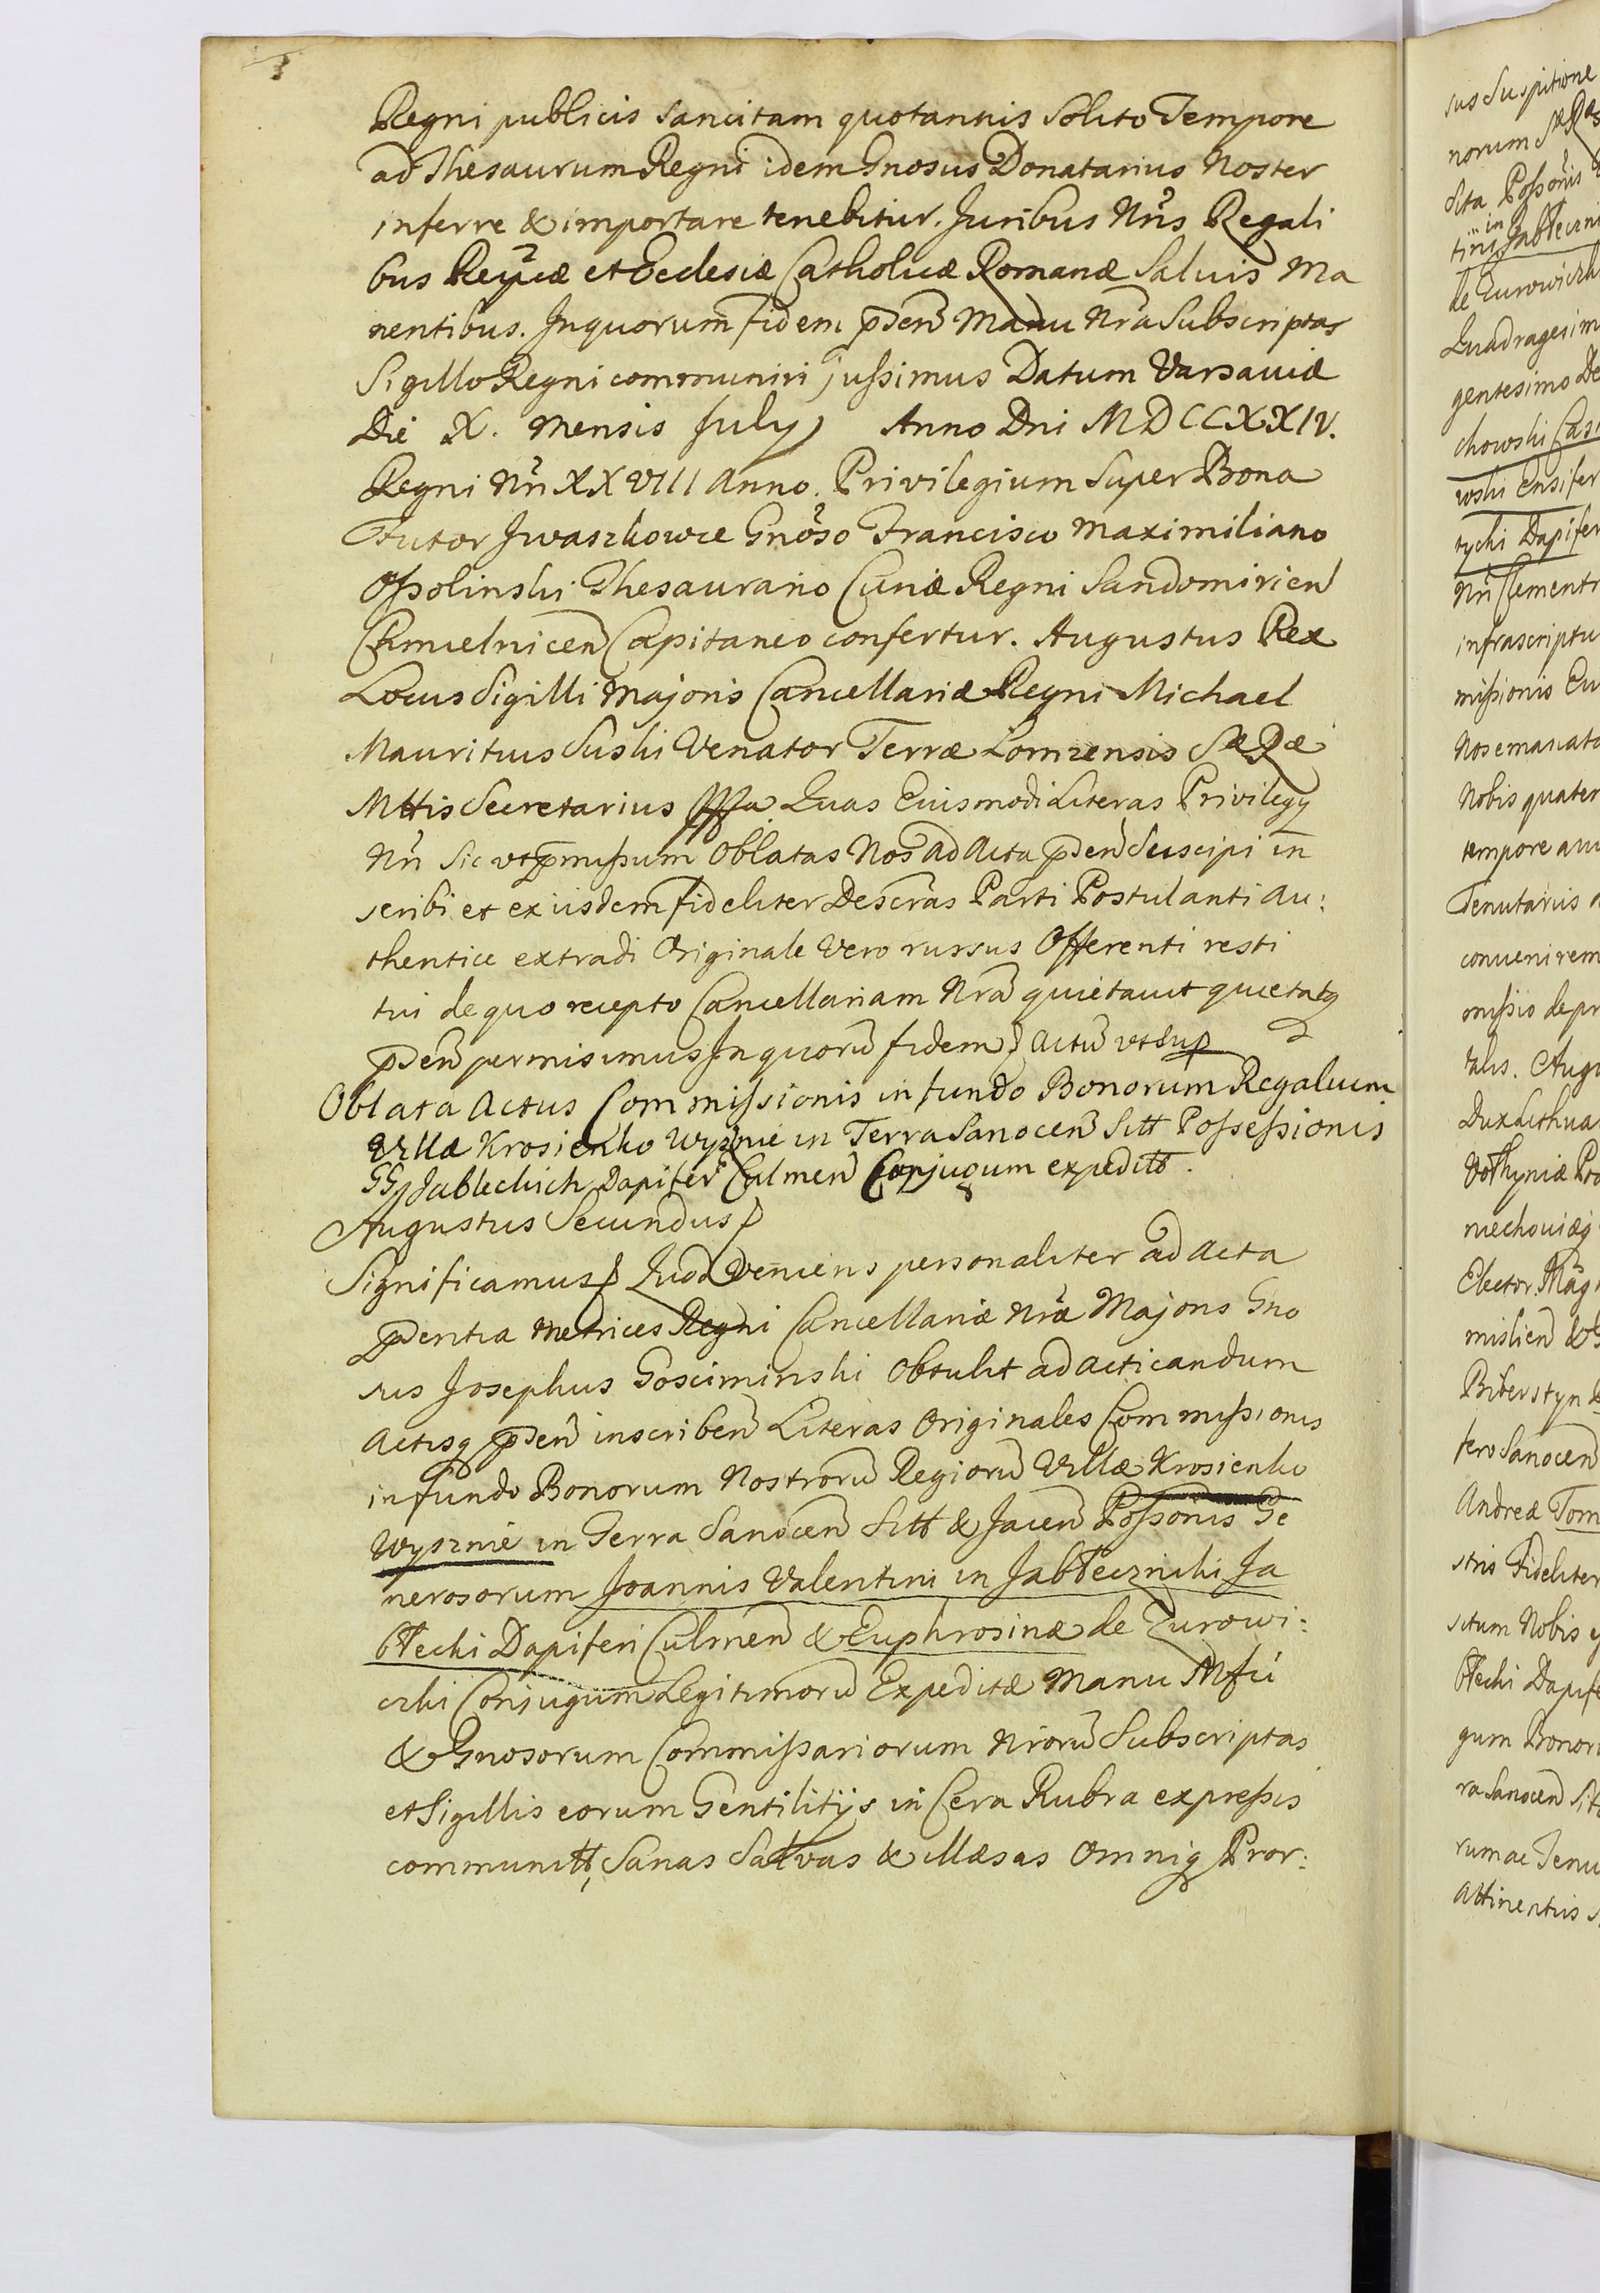 Regni publicis sancitam quotannis Solito Tempore
ad Thesaurum Regni idem Gnosus Donatarius Noster
inferre & importare tenebitur. Juribus Nris Regali
bus Reipcæ et Ecclesiæ Catholicæ Romanæ Salvis Ma
nentibus. In quorum fidem pden Manu Nra Subscriptas
Sigillo Regni communiri jussimus Datum Varsaviæ
Die X. Mensis July Anno Dni MDCCXXIV.
Regni Nri XXVIII Anno. Privilegium Super Bona
Tutor Iwaszkowce Gnoso Francisco Maximiliano
Ossolinski Thesaurario Curiæ Regni Sandomirien
Chmielnicen Capitaneo confertur. Augustus Rex
Locus Sigilli Majoris Cancellariæ Regni Michael
Mauritius Suski Venator Terræ Lomzensis SæRæ
Mttis Secretarius Quas Euismodi Literas Privilegy
Nri Sic ut pmissum Oblatas Nos ad Acta pden Suscipi in
scribi et ex iisdem fideliter Descras Parti Postulanti Au:
thentice extradi Originale Vero rursus Offerenti resti
tui de quo recepto Cancellariam Nram quietavit quietatq
pden permisimus In quorū fidem Actū ut Sup
Oblata Actus Commissionis in fundo Bonorum Regalium
Villæ Krosienko Wyżnie in Terra Sanocen Sitt Possessionis
GG Jableckich Dapifer Culmen Conjugum expedite.
Augustus Secundus
Significamus Quod Veniens personaliter ad Acta
pdentia Metrices Regni Cancellariæ Nræ Majoris Gno
sus Josephus Gosciminski Obtulit ad acticandum
Actisq pden inscriben Literas Originales Commissionis
in fundo Bonorum Nostrorū Regiorū Villæ Krosienko
Wysznie in Terra Sanocen Sitt & Jacen Possonis Ge
nerosorum Joannis Valentini in Jabłeczniki Ja
błecki Dapiferi Culmen & Euphrosinæ de Zurowi:
czki Conjugum Legitimorū Expeditæ Manu Mfci
& Gnosorum Commissariorum Nrorū Subscriptas
et Sigillis eorum Gentilitijs in Cera Rubra expressis
communitt, Sanas Salvas & illæsas Omniq Pror:
sus Suspitione
norum
sita Possonis
in
tini Jabłeczni
de Zurowiczk
Quadragesim
gentesimo De
chowski Cas
woski Ensifer
tycki Dapifer
Nri Clementi
infrascriptu
missionis
Nos emanata
Nobis quater
tempore
Tenutarius
convenirem
missio de pr
talis. Augu
Dux Lithua
Volhyniæ Pro
niechoviæq
Elector
mislien
Biberstyn
fero Sanocen
Andreæ Tom
stris Fideliter
situm Nobis
błecki Dapife
gum Bonor
ra Sanocen Sit
rum ac Tenu
Attinentiis